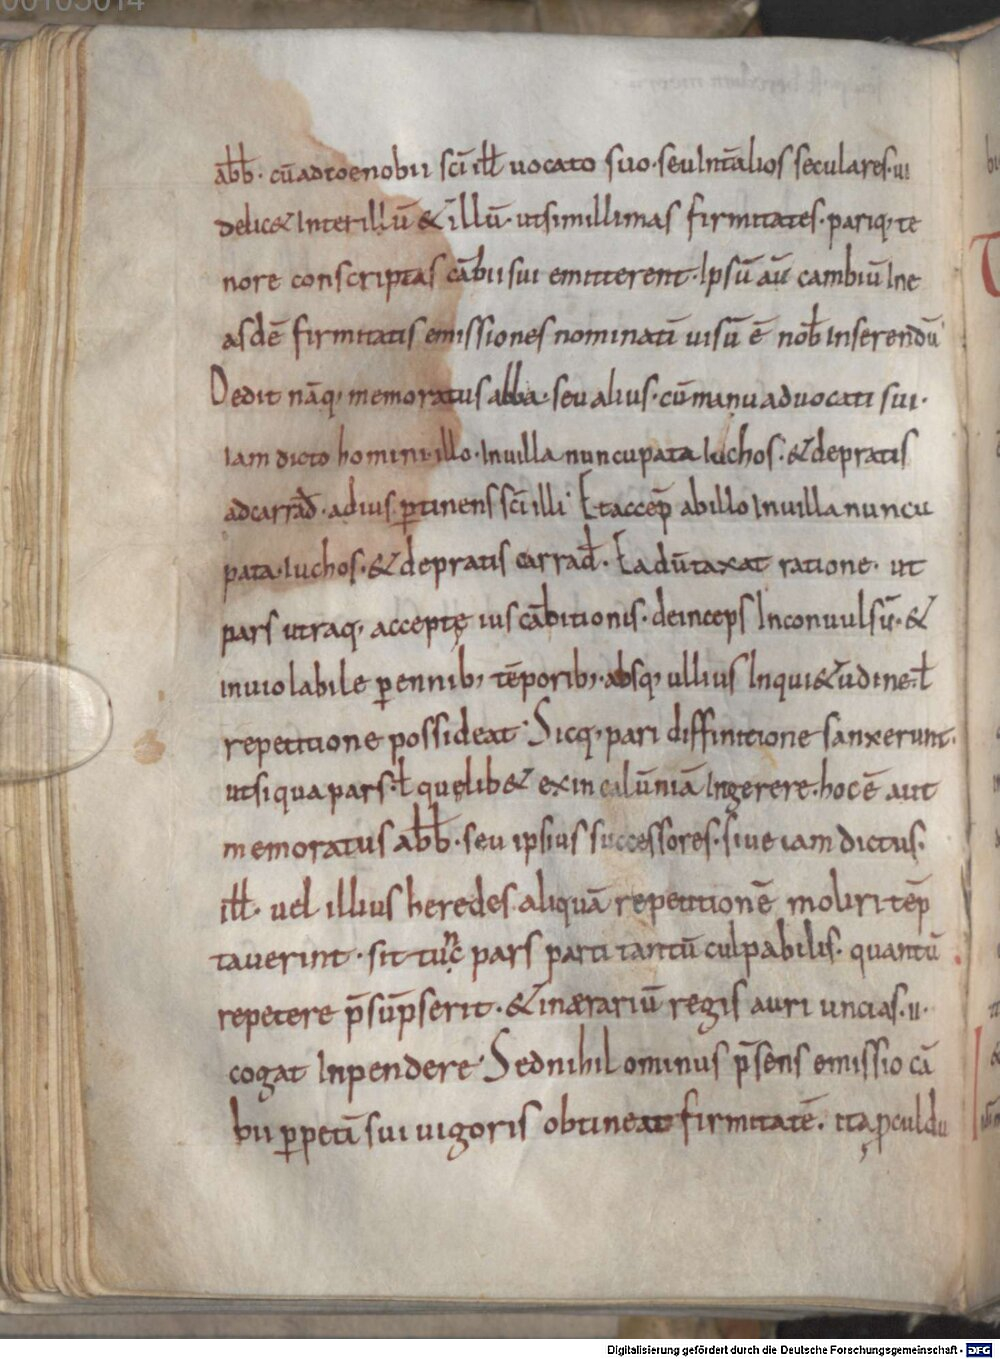 00105014
abb̅ · cū adcoenobii sc̄i ill̅ uocato suo · seu Int̄ alios seculares · ui
delic& Inter illū & illū · utsimillimas firmitates · pariq; te
nore conscriptas cābii sui emitterent · Ipsū aū cambiū Ine
asdē firmitatis emissiones nominatī uisū ē nob̅ Inserendū
Dedit nāq; memoratus abba · seu alius · cū manu aduocati sui ·
Iam dicto homini · illo · Inuilla nuncupata luchos · & depratis
adcarrad̅ · adius p̲tinens sc̄i illi · Et accep̄ abillo Inuilla nuncu
pata · luchos · & depratis carrad̅ · Ea dūtaxat ratione · ut
pars utraq; acceptę ius cābitionis · deinceps Inconuulsū · &
inuiolabile p̲ennib; tēporib; · absq; ullius Inqui&udine · ł
repetitione possideat · Sicq; pari diffinitione sanxerunt ·
utsi qua pars · ł quęlib& exin calūniā Ingerere · hoc ē aut
memoratus abb̅ · seu ipsius successores · siue iam dictus ·
ill̅ · uel illius heredes aliquā repetitionē moliri tēp
tauerint · sit tuc̄ⁿ pars parti tantū culpabilis · quantū
repetere p̄sūpserit · & inærariū regis auri uncias · u ·
cogat Inpendere · Sed nihil ominus p̄sens emissio cā
bii p̲petī sui uigoris obtineat firmitatē · ita p̲culdu
Digitalisierung gefördert durch die Deutsche Forschungsgemeinschaft - DFG